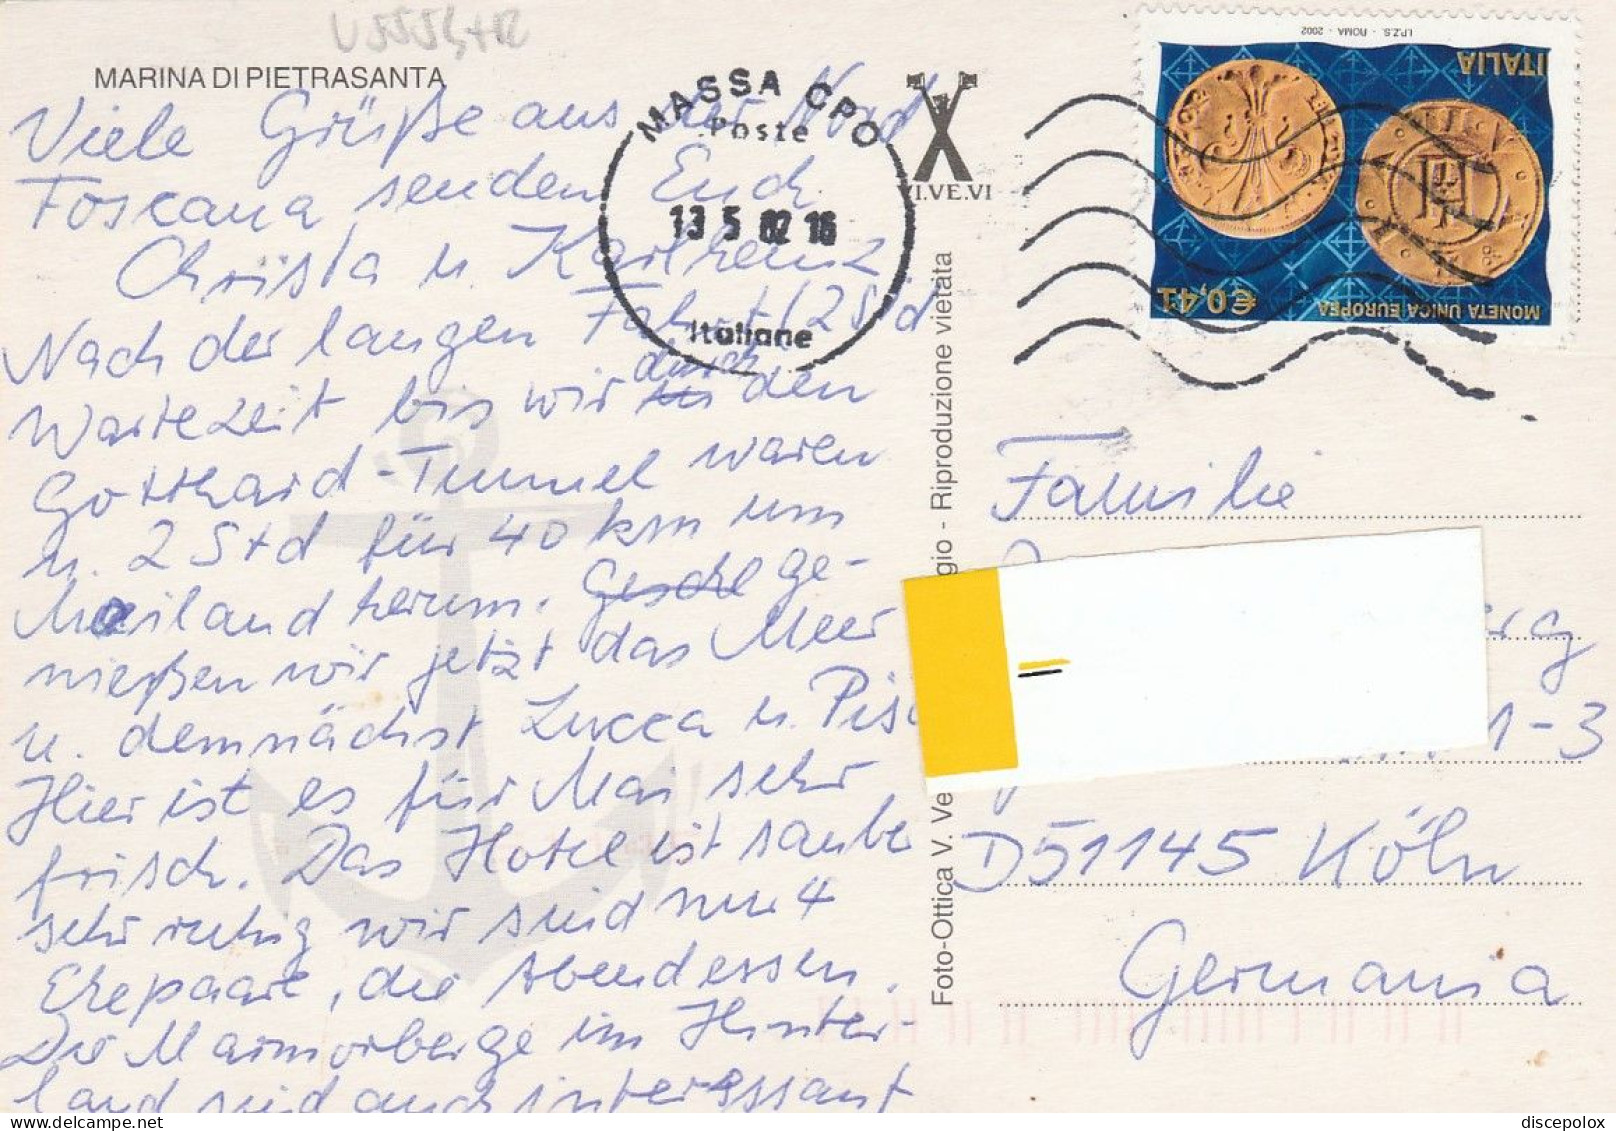 U5553+12
MARINA DI PIETRASANTA
Viele Grüße aus der Nord
Toscana senden Euch
Christa u. Karlheinz
Nach der langen Fahrt (2 Std
Wartezeit bis wir durch den
Gotthard-Tunnel waren
u. 2 Std für 40 km um
Mailand herum. Geschl ge-
nießen wir jetzt das Meer
u. demnächst Lucca u. Pisa
Hier ist es für Mai sehr
frisch. Das Hotel ist sauber
sehr ruhig wir sind nur 4
Ehepaare, die Abendessen.
Die Marmorberge im Hinter-
land sind auch interessant
MASSA CPO
Poste
13 5 02 16
Italiane
VI.VE.VI
Foto-Ottica V. Ve gio - Riproduzione vietata
I.P.Z.S. - ROMA - 2002
ITALIA
MONETA UNICA EUROPEA
€0,41
Familie
rg
1-3
D51145 Köln
Germania
discepolox